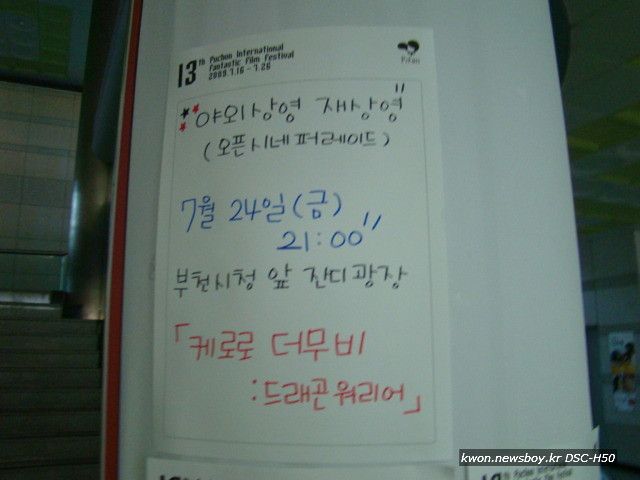 13th Puchon International
Fantastic Film Festival
2009.7.16 - 7.26
PiFan
야외상영 재상영"
(오픈시네퍼레이드)
7월 24일(금)
21:00"
부천시청 앞 잔디광장
「케로로 더무비
:드래곤워리어」
kwon.newsboy.kr DSC-H50